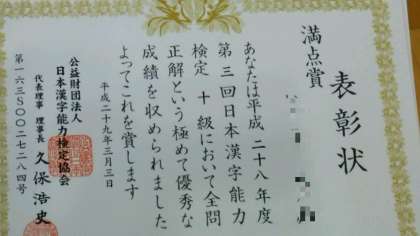 表彰状
満点賞
あなたは平成二十八年度
第三回日本漢字能力
検定 十級において全問
正解という極めて優秀な
成績を収められました
よってこれを賞します
平成二十九年三月三日
公益財団法人
日本漢字能力検定協会
代表理事 理事長 久保浩史
第一六三S〇〇二七二八四号